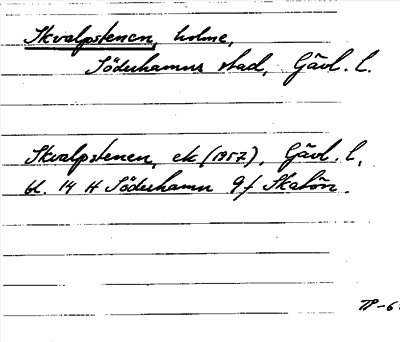 Skvalpstenen, holme,
Söderhamns stad, Gävl. l.
Skvalpstenen, ek (1957), Gävl. l,
bl. 14 H Söderhamn 9f Skatön.
TP-6